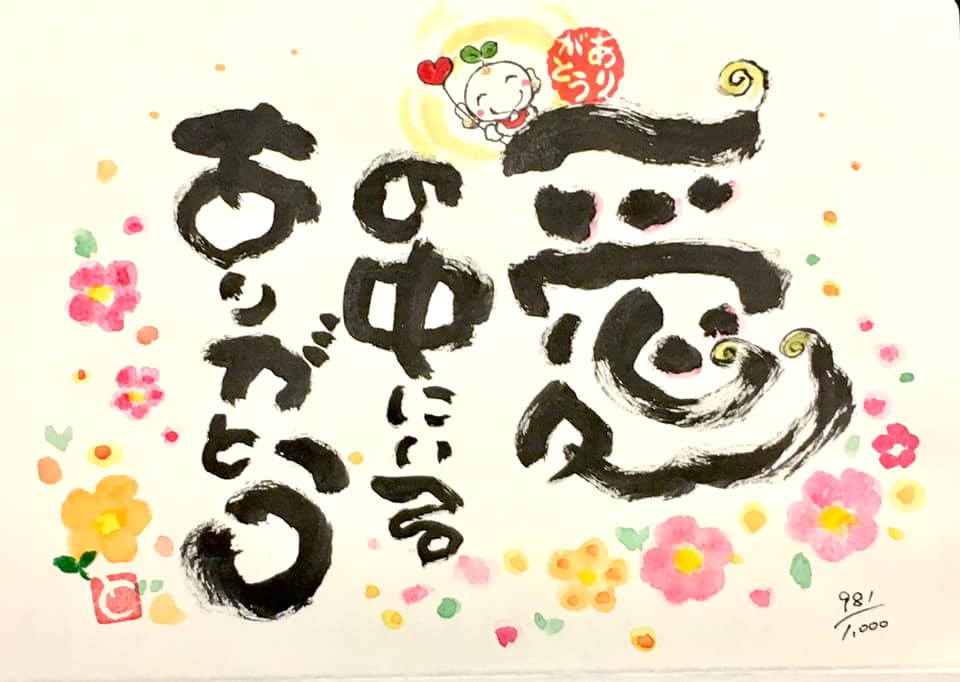 愛
の中にいる
ありがとう
あり
がとう
981/1,000